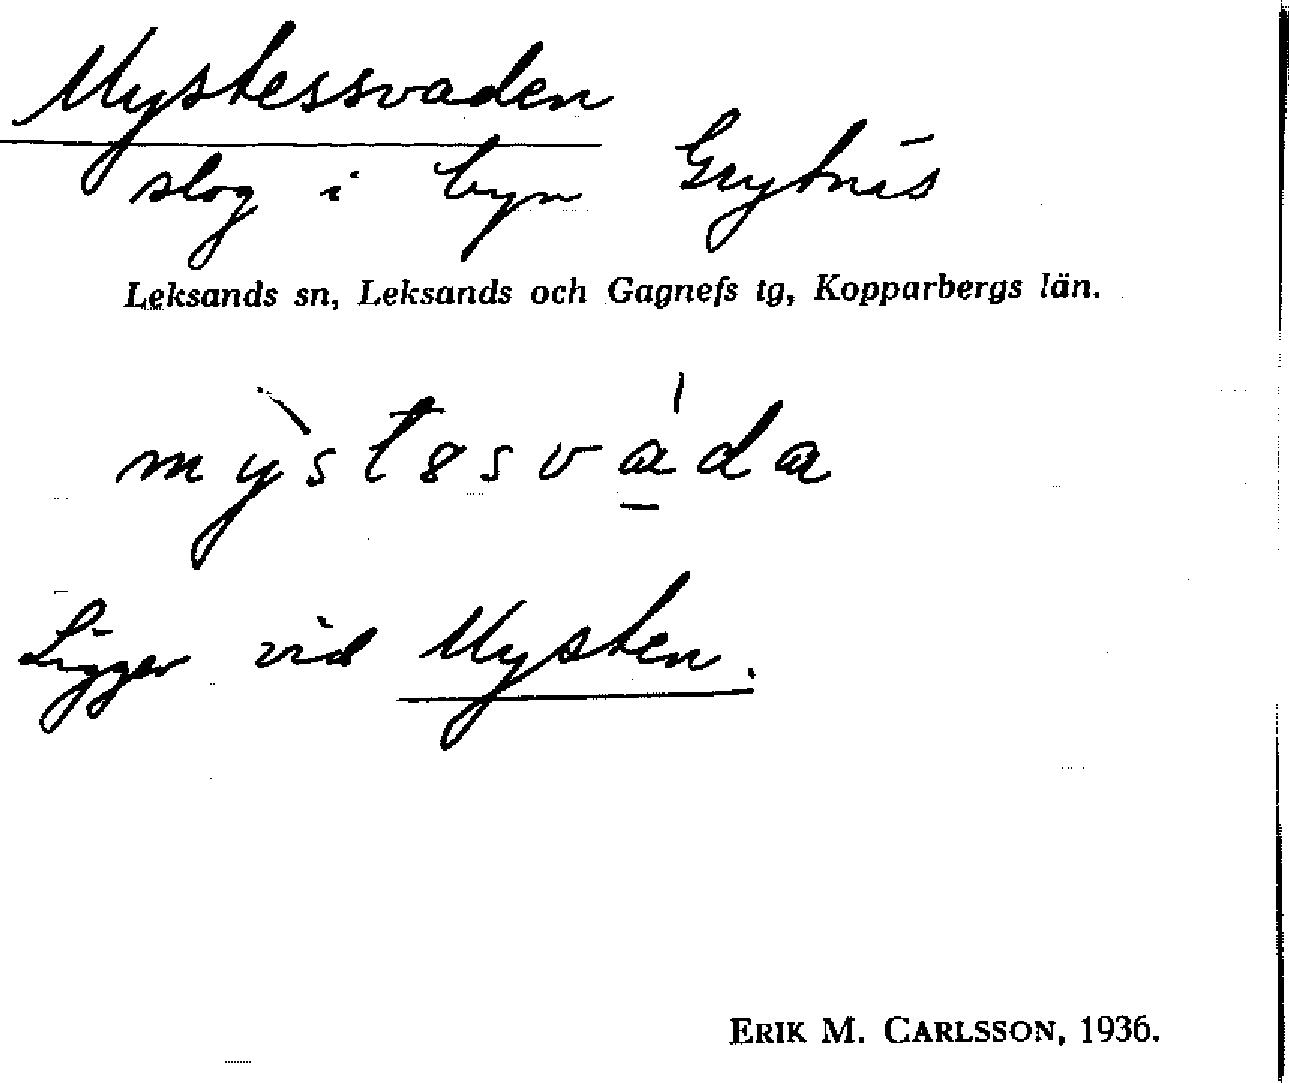 Mystessvaden
slog i byn Grytnäs
Leksands sn, Leksands och Gagnefs tg, Kopparbergs län.
Ligger vid Mysten.
ERIK M. CARLSSON, 1936.